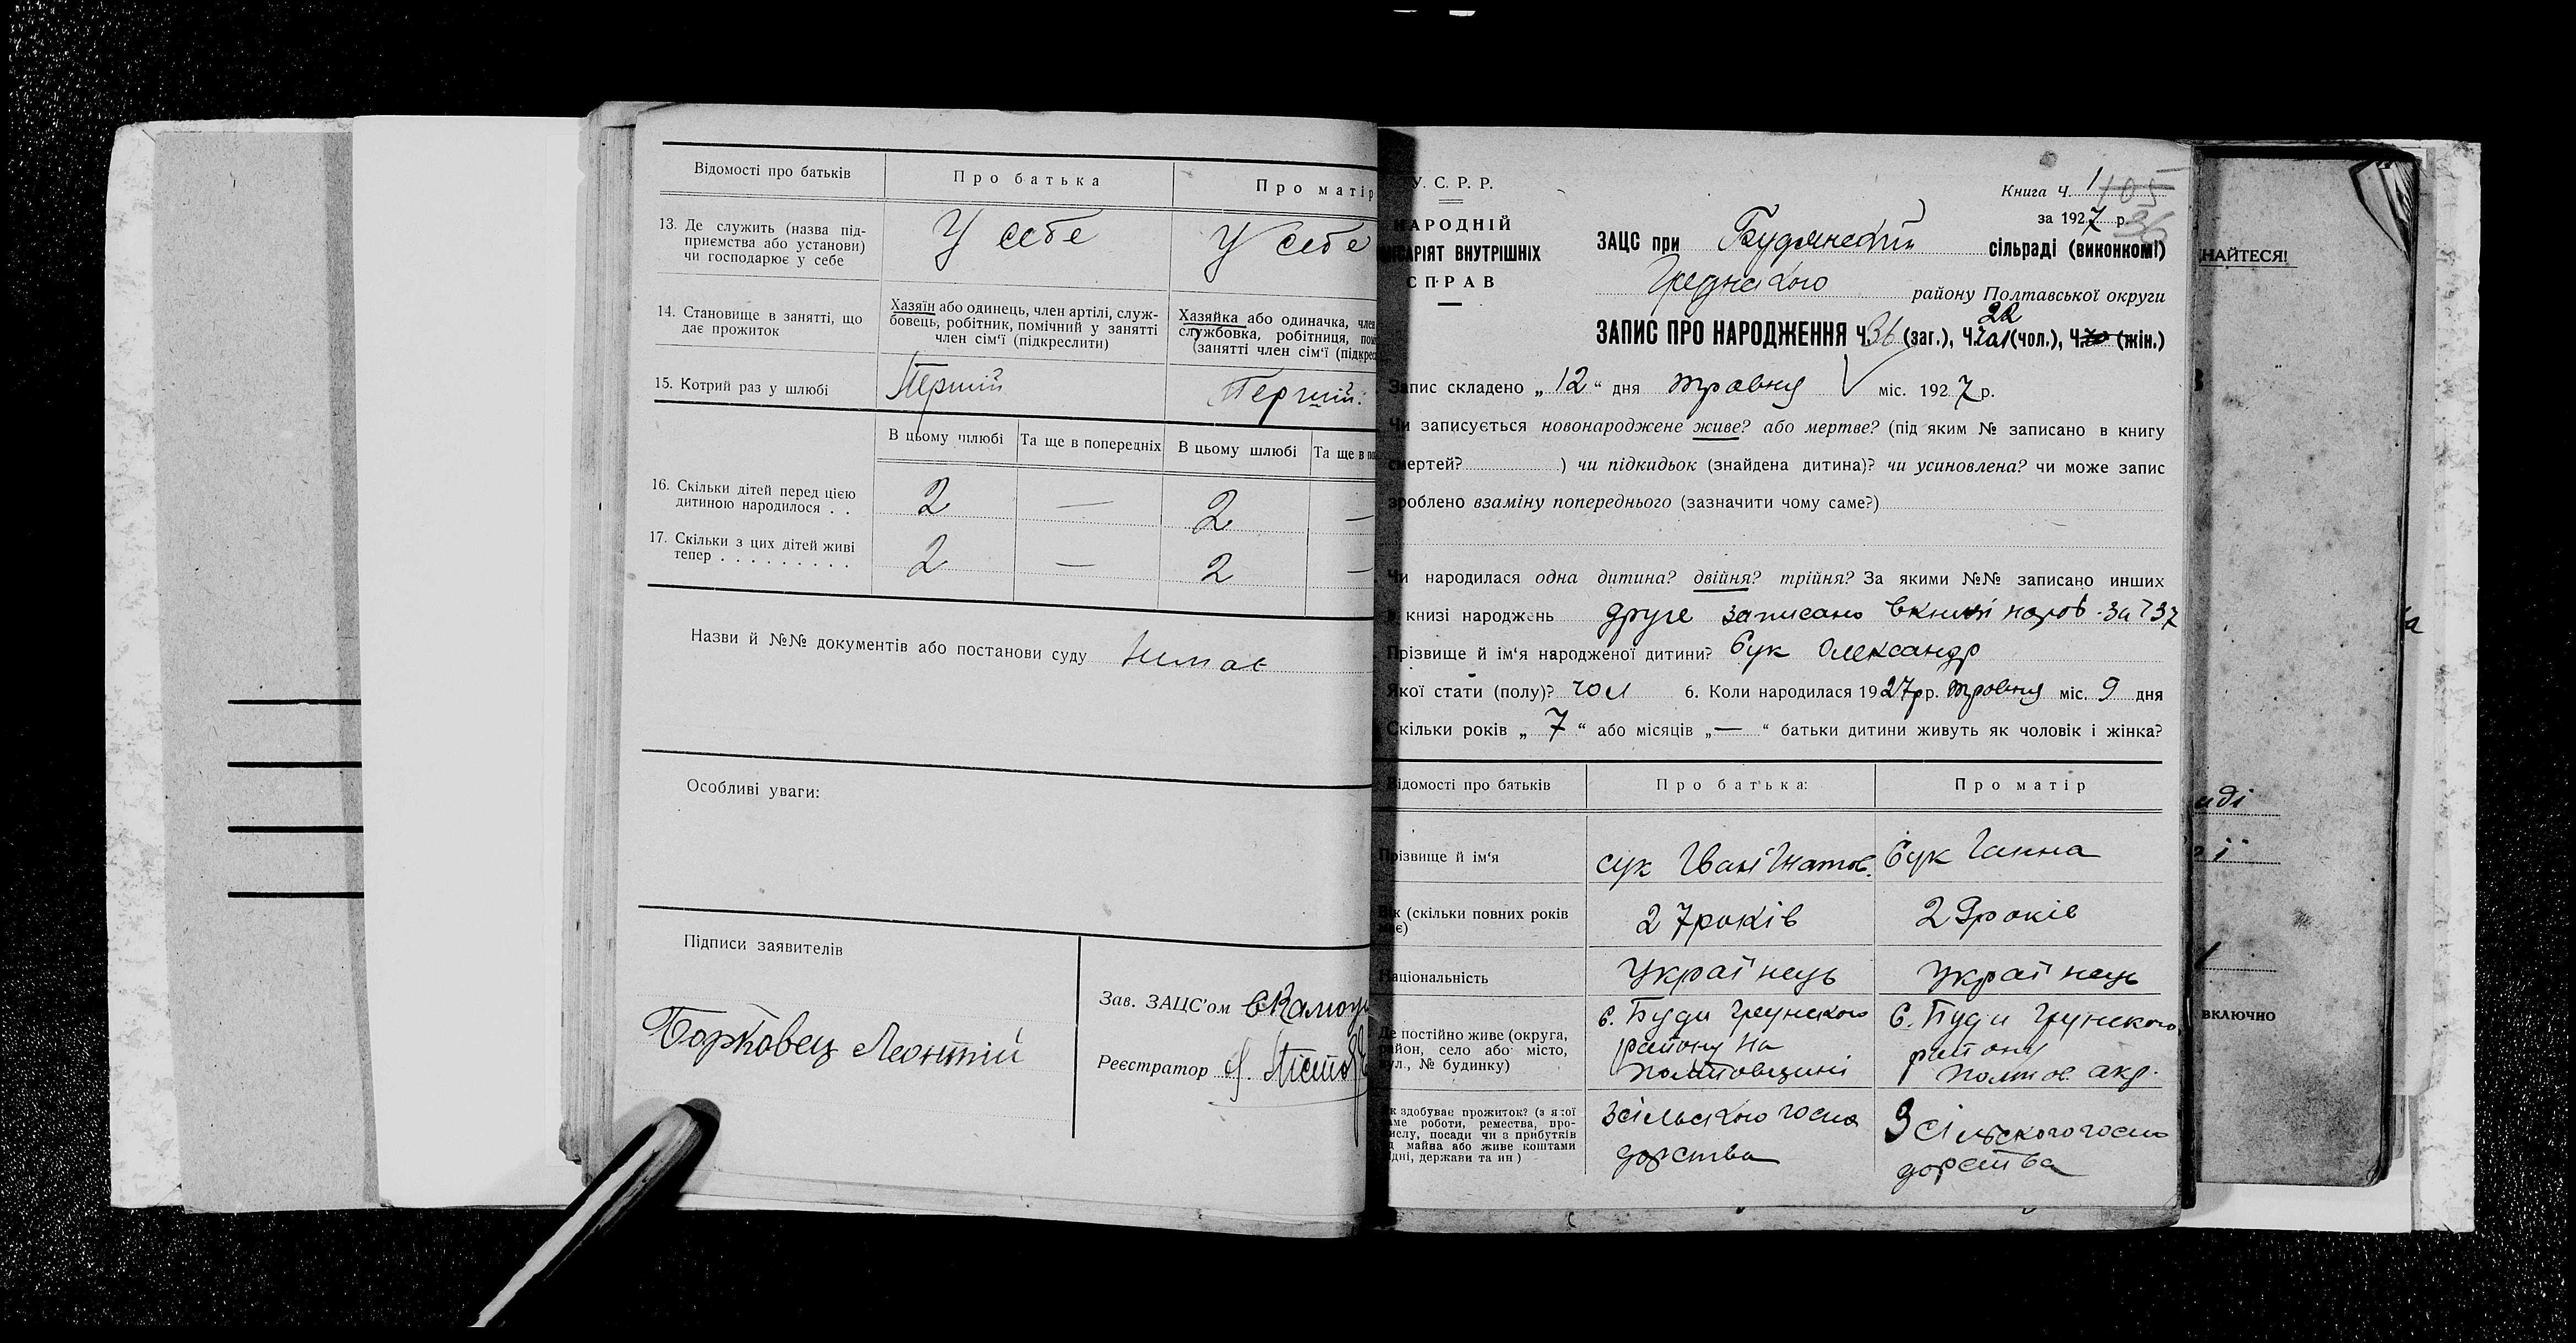 Відомості про батьків
Про батька
Про матір
13. Де служить (назва під-
приємства або установи)
чи господарює у себе
У себе
У себе
14. Становище в занятті, що
дає прожиток
Хазяїн або одинець, член артілі, служ-
бовець, робітник, помічний у занятті
член сім'ї (підкреслити)
Хазяйка або одиначка, член
службовка, робітниця,
(занятті член сім'ї
15. Котрий раз у шлюбі
Перший
Перший.
В цьому шлюбі
Та ще в попередніх
В цьому шлюбі
Та ще в
16. Скільки дітей перед цією
дитиною народилося . .
2 — 2 —
17. Скільки з цих дітей живі
тепер . . . . . . . . .
2 — 2 —
Назви й №№ документів або постанови суду немає
Особливі уваги:
Підписи заявителів
Борковец Леонтій
Зав. ЗАЦС'ом
Реєстратор
У. С. Р. Р.
НАРОДНІЙ
ВНУТРІШНІХ
СПРАВ
Книга Ч. 1
105
за 1927 р.
36
ЗАЦС при Будянський сільраді (виконкомі)
району Полтавської округи
22
ЗАПИС ПРО НАРОДЖЕННЯ Ч 36 (заг.), Ч (чол.), Ч (жін.)
Запис складено „ 12 “ дня травня міс. 1927 р.
Чи записується новонароджене живе? або мертве? (під яким № записано в книгу
смертей? ) чи підкидьок (знайдена дитина)? чи усиновлена? чи може запис
зроблено взаміну попереднього (зазначити чому саме?)
Чи народилася одна дитина? двійня? трійня? За якими №№ записано инших
в книзі народжень друге записано в книзі народ. за 37
Прізвище й ім'я народженої дитини? Сук Олександр
Якої стати (полу)? чол 6. Коли народилася 1927р р. травня міс. 9 дня
Скільки років „ 7 “ або місяців „ — “ батьки дитини живуть як чоловік і жінка?
Відомості про батьків
Про батька:
Про матір
Прізвище й ім'я
Сук Іван
Сук Ганна
Вік (скільки повних років
має)
27 років
29 років
Національність
Українець
Українець
Де постійно живе (округа,
район, село або місто,
вул., № будинку)
с. Буди Грунского
району на
Полтовщині
с. Буди Грунского
району
Полтов. окр.
Як здобуває прожиток? (з якої
саме роботи, ремества, про-
мислу, посади чи з прибутків
від майна або живе коштами
рідні, держави та ин)
З сільского госпо
дорства
З сільского госпо
дорства
НАЙТЕСЯ!
ВКЛЮЧНО